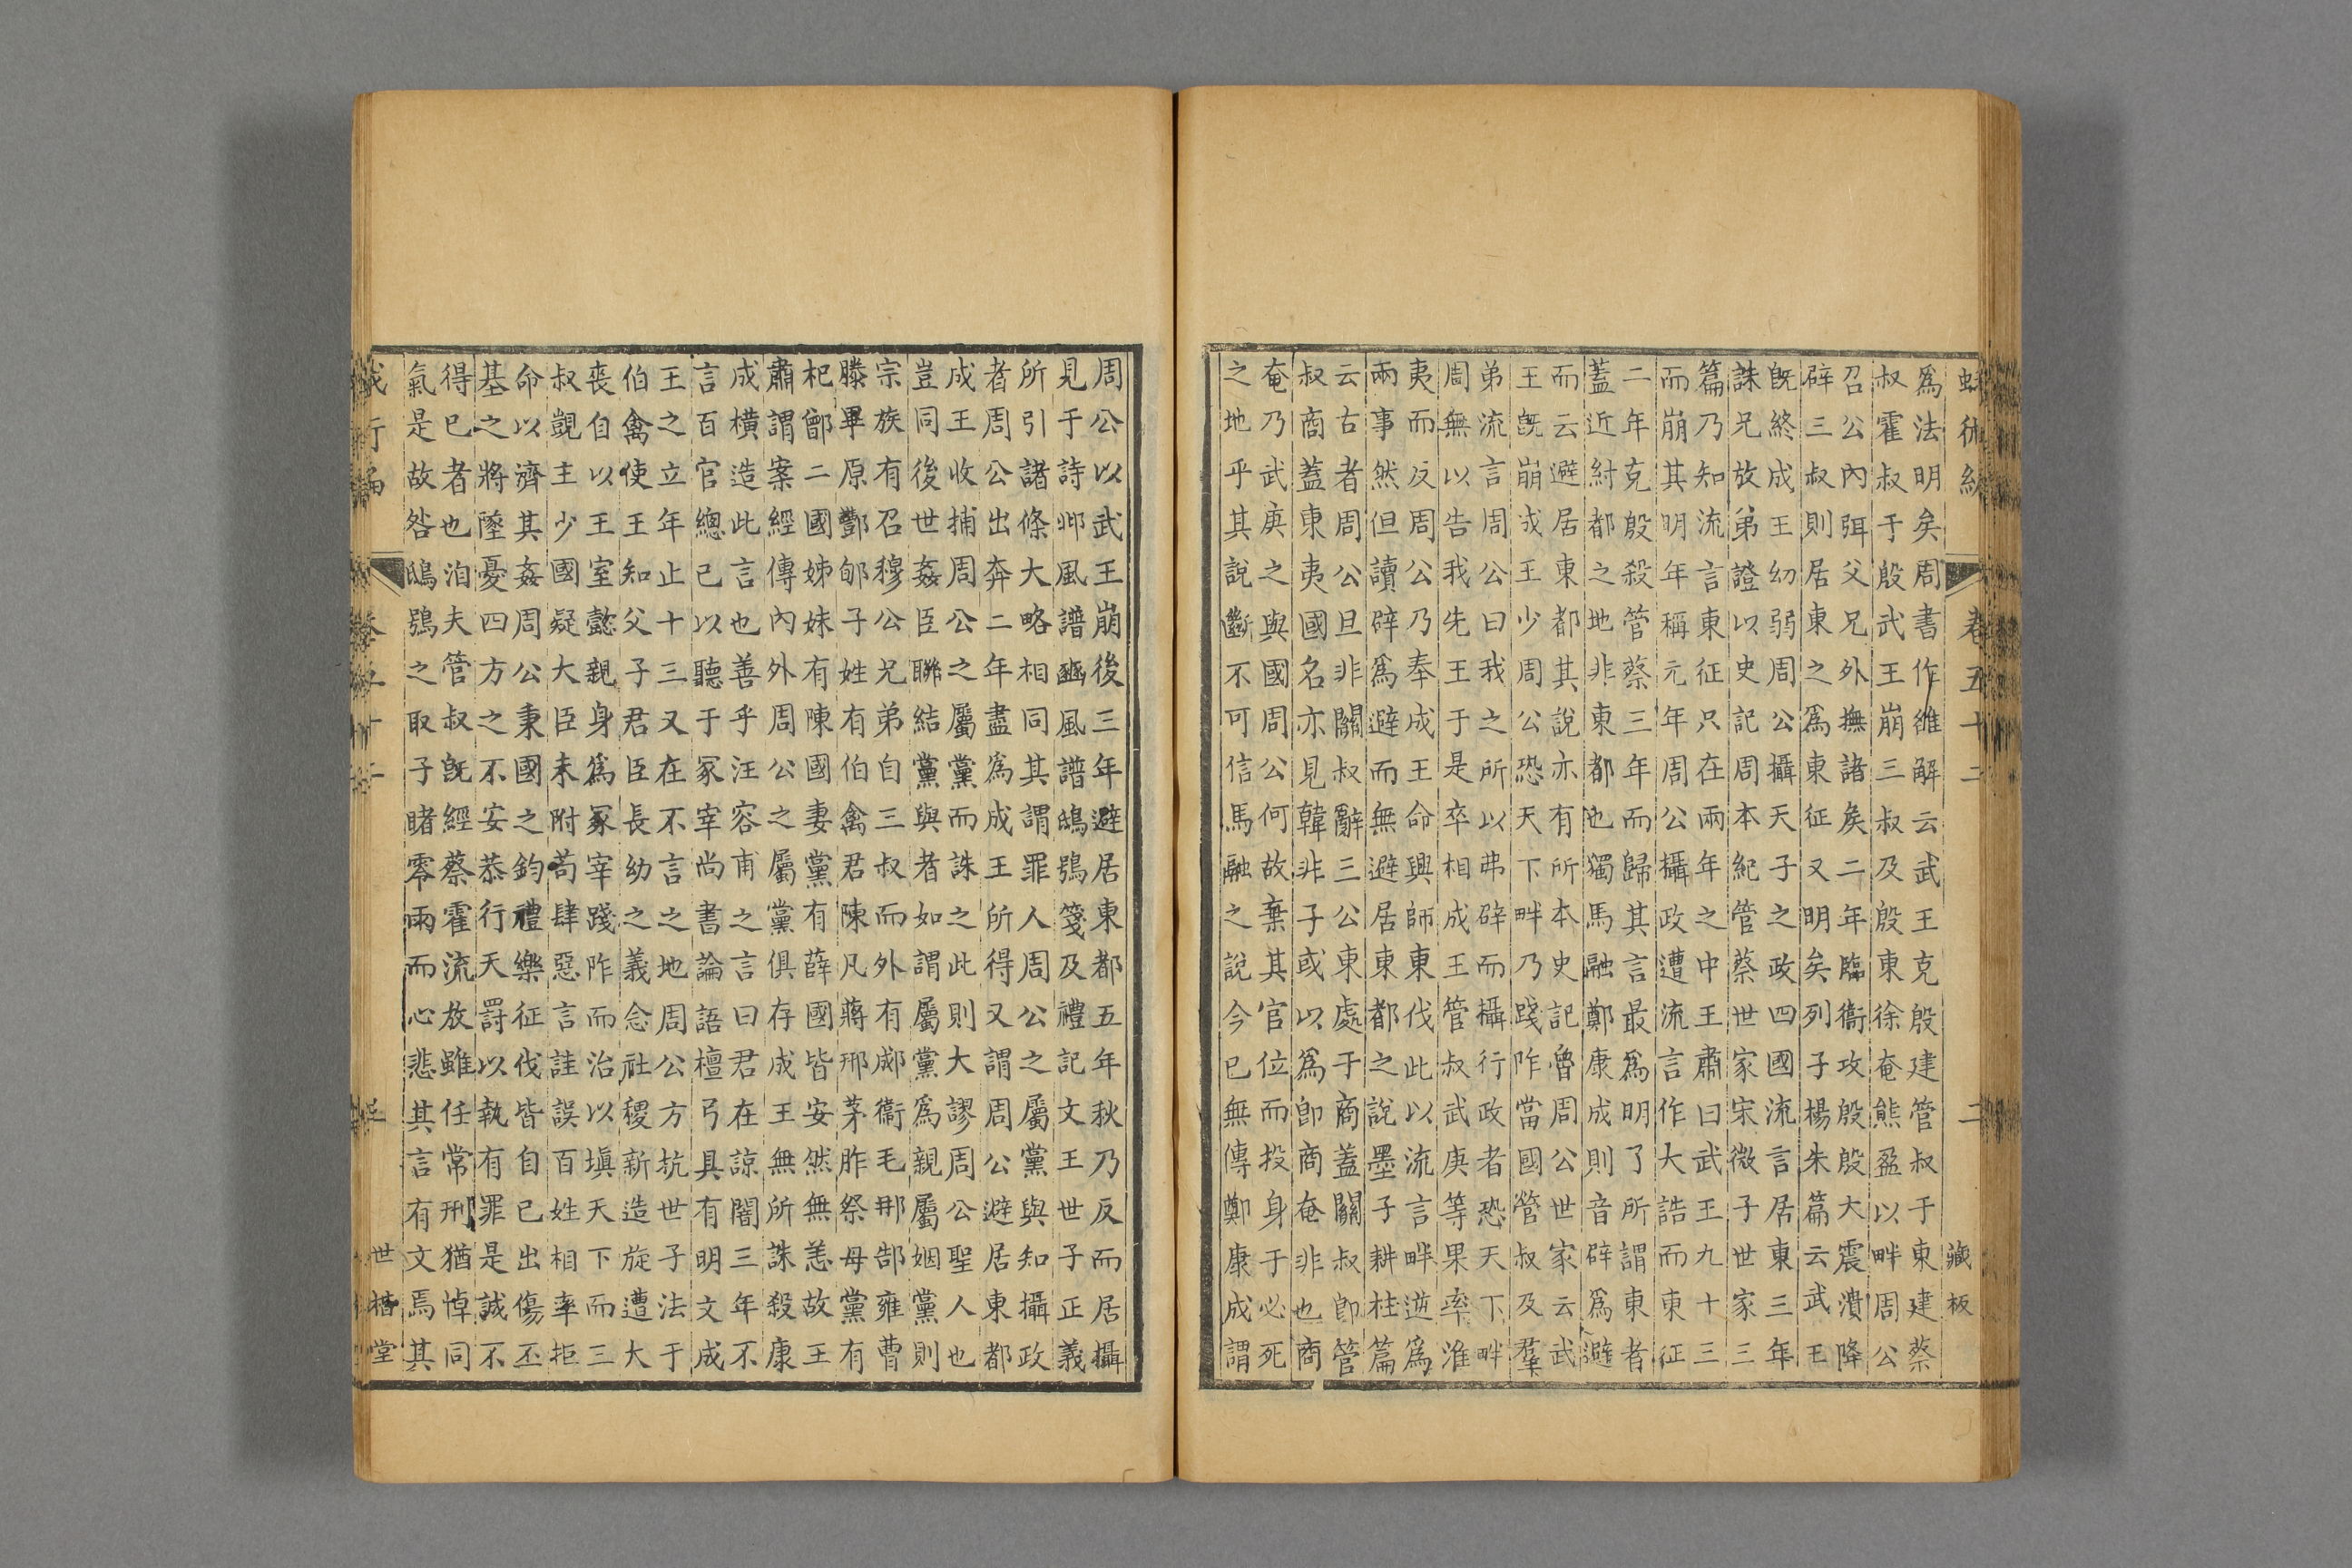 蛾術編
卷五十二
二
藏板
爲法明矣周書作雒解云武王克殷建管叔于東建蔡
叔霍叔于殷武王崩三叔及殷東徐奄熊盈以畔周公
召公內弭父兄外撫諸矦二年臨衞攻殷殷大震潰降
辟三叔則居東之爲東征又明矣列子楊朱篇云武王
旣終成王幼弱周公攝天子之政四國流言居東三年
誅兄放弟證以史記周本紀管蔡世家宋微子世家三
篇乃知流言東征只在兩年之中王肅曰武王九十三
而崩其明年稱元年周公攝政遭流言作大誥而東征
二年克殷殺管蔡三年而歸其言最爲明了所謂東者
蓋近紂都之地非東都也獨馬融鄭康成則音辟爲避
而云避居東都其說亦有所本史記魯周公世家云武
王旣崩成王少周公恐天下畔乃踐阼當國管叔及羣
弟流言周公曰我之所以弗辟而攝行政者恐天下畔
周無以告我先王于是卒相成王管叔武庚等果率淮
夷而反周公乃奉成王命興師東伐此以流言畔逆爲
兩事然但讀辟爲避而無避居東都之說墨子耕柱篇
云古者周公旦非關叔辭三公東處于商蓋關叔卽管
叔商蓋東夷國名亦見韓非子或以爲卽商奄非也商
奄乃武庚之與國周公何故棄其官位而投身于必死
之地乎其說斷不可信馬融之說今已無傳鄭康成謂
周公以武王崩後三年避居東都五年秋乃反而居攝
見于詩邶風譜豳風譜鴟鴞箋及禮記文王世子正義
所引諸條大略相同其謂罪人周公之屬黨與知攝政
者周公出奔二年盡爲成王所得又謂周公避居東都
成王收捕周公之屬黨而誅之此則大謬周公聖人也
豈同後世姦臣聯結黨與者如謂屬黨爲親屬姻黨則
宗族有召穆公兄弟自三叔而外有郕衞毛耼郜雍曹
滕畢原酆郇子姓有伯禽君陳凡蔣邢茅胙祭母黨有
杞鄫二國姊妹有陳國妻黨有薛國皆安然無恙故王
肅謂案經傳內外周公之屬黨俱存成王無所誅殺康
成橫造此言也善乎汪容甫之言曰君在諒闇三年不
言百官總己以聽于冢宰尚書論語檀弓具有明文成
王之立年止十三又在不言之地周公方抗世子法于
伯禽使王知父子君臣長幼之義念社稷新造旋遭大
喪自以王室懿親身爲冢宰踐阼而治以塡天下而三
叔覬主少國疑大臣未附苟肆惡言詿誤百姓相率拒
命以濟其姦周公秉國之鈞禮樂征伐皆自己出傷丕
基之將墜憂四方之不安恭行天罰以執有罪是誠不
得已者也洎夫管叔旣經蔡霍流放雖任常刑猶悼同
氣是故咎鴟鴞之取子睹零雨而心悲其言有文焉其
世楷堂